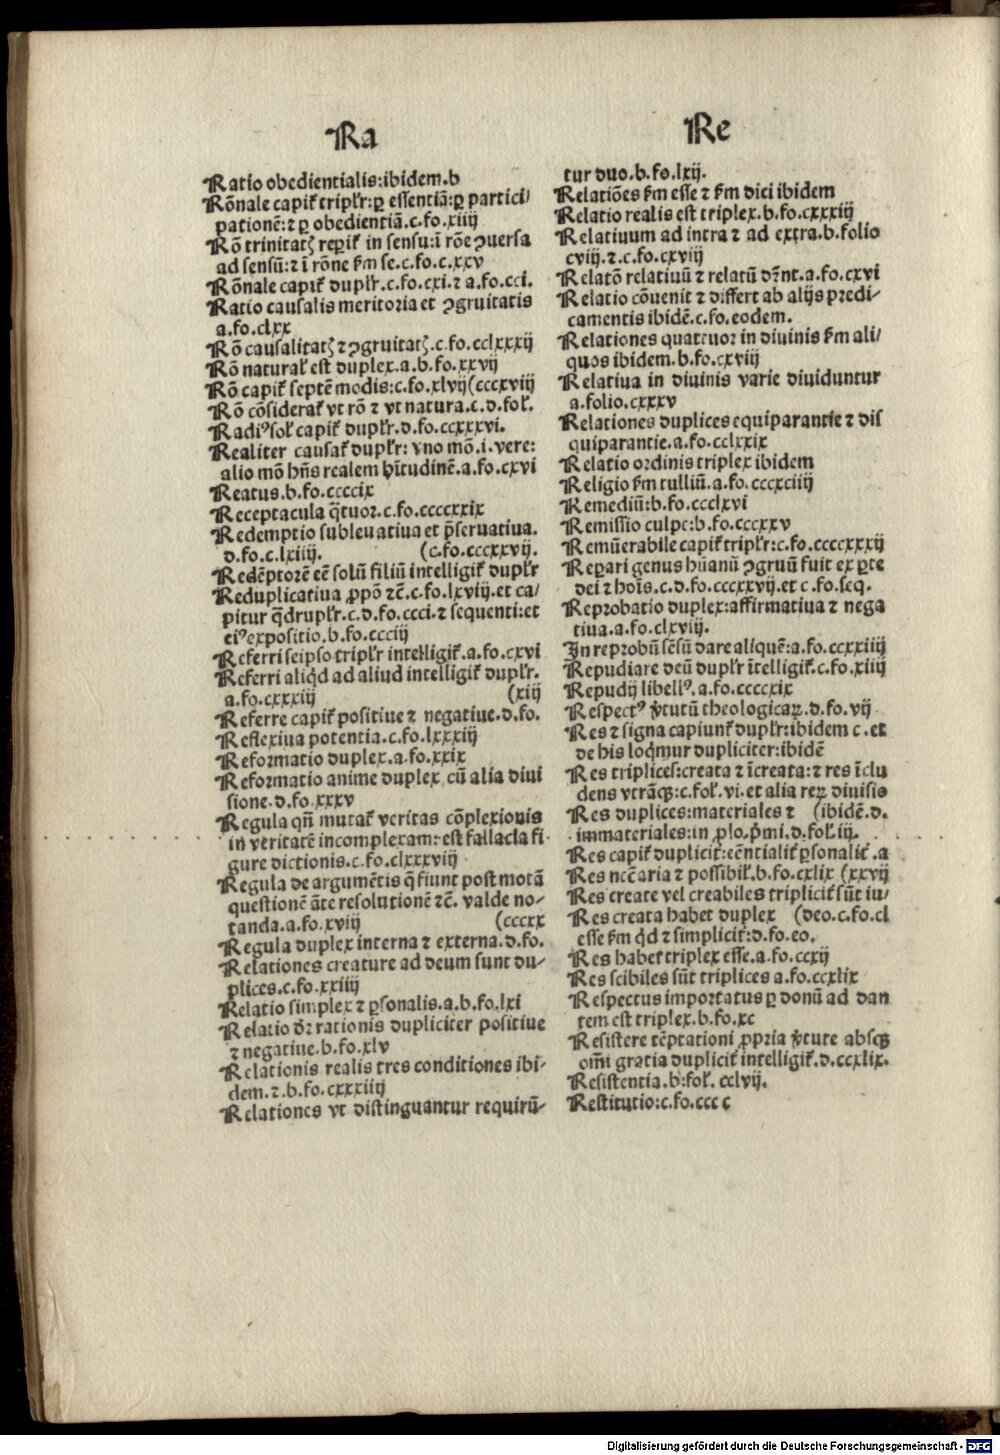 Ra
Ratio obedientialis:ibidem.b
Rõnale capiť tripľr:ꝑ essentiã:ꝑ partici/
pationẽ:⁊ ꝑ obedientiã.c.fo.xiiij
Rõ trinitatꝭ reꝑiť in sensu:ĩ rõe ꝯuersa
ad sensũ:⁊ ĩ rõne ẜm se.c.fo.c.xxv
Rõnale capiť dupľr.c.fo.cxi.⁊ a.fo.cci.
Ratio causalis meritoria et ꝯgruitatis
a.fo.clxx
Rõ causalitatꝭ ⁊ ꝯgruitatꝭ.c.fo.cclxxxij
Rõ naturaľ est duplex.a.b.fo.xxvij
Rõ capiť septẽ modis:c.fo.xlvij(cccxviij
Rõ cõsiderať vt rõ ⁊ vt natura.c.d.foľ.
Radiꝰsoľ capiť dupľr.d.fo.ccxxxvi.
Realiter causať dupľr: vno mõ.i.vere:
alio mõ hñs realem hĩtudinẽ.a.fo.cxvi
Reatus.b.fo.ccccix
Receptacula q̃tuor.c.fo.ccccxxix
Redemptio subleuatiua et p̃seruatiua.
d.fo.c.lxiiij. (c.fo.cccxxvij.
Redẽptorẽ eẽ solũ filiũ intelligiť dupľr
Reduplicatiua ꝓpõ ⁊c̃.c.fo.lxviij.et ca/
pitur q̃drupľr.c.d.fo.ccci.⁊ sequenti:et
eiꝰexpositio.b.fo.cccij
Referri seipso tripľr intelligiť.a.fo.cxvi
Referri aliq̃d ad aliud intelligiť dupľr.
a.fo.cxxxiij (xij
Referre capiť positiue ⁊ negatiue.d.fo.
Reflexiua potentia.c.fo.lxxxiij
Reformatio duplex.a.fo.xxix
Reformatio anime duplex cũ alia diui
sione.d.fo.xxxv
Regula qñ mutať veritas cõplexionis
in veritatẽ incomplexam:est fallacia fi
gure dictionis.c.fo.clxxxviij
Regula de argumẽtis q̃ fiunt post motã
questionẽ ãte resolutionẽ ⁊c̃. valde no/
tanda.a.fo.xviij (cccxx
Regula duplex interna ⁊ externa.d.fo.
Relationes creature ad deum sunt du/
plices.c.fo.xxiiij
Relatio simplex ⁊ ꝑsonalis.a.b.fo.lxi
Relatio dr̃ rationis dupliciter positiue
⁊ negatiue.b.fo.xlv
Relationis realis tres conditiones ibi/
dem.⁊.b.fo.cxxxiiij
Relationes vt distinguantur requirũ/
Re
tur duo.b.fo.lxij.
Relatiões ẜm esse ⁊ ẜm dici ibidem
Relatio realis est triplex.b.fo.cxxxiij
Relatiuum ad intra ⁊ ad extra.b.folio
cviij.⁊.c.fo.cxviij
Relatõ relatiuũ ⁊ relatũ dr̃nt.a.fo.cxvi
Relatio cõuenit ⁊ differt ab alijs predi/
camentis ibidẽ.c.fo.eodem.
Relationes quattuor in diuinis ẜm ali/
quos ibidem.b.fo.cxviij
Relatiua in diuinis varie diuiduntur
a.folio.cxxxv
Relationes duplices equiparantie ⁊ dis
quiparantie.a.fo.cclxxix
Relatio ordinis triplex ibidem
Religio ẜm tulliũ.a.fo.cccxciiij
Remediũ:b.fo.ccclxvi
Remissio culpe:b.fo.cccxxv
Remũerabile capiť tripľr:c.fo.ccccxxxij
Reꝑari genus hũanũ ꝯgruũ fuit ex ꝑte
dei ⁊ hoĩs.c.d.fo.cccxxvij.et c.fo.seq.
Reprobatio duplex:affirmatiua ⁊ nega
tiua.a.fo.clxviij.
In reprobũ sẽsũ dare aliquẽ:a.fo.ccxxiiij
Repudiare deũ dupľr ĩtelligiť.c.fo.xliij
Repudij libellꝰ.a.fo.ccccxix
Respectꝰ ṽtutũ theologicaꝝ.d.fo.vij
Res ⁊ signa capiunť dupľr:ibidem c.et
de his loq̃mur dupliciter:ibidẽ
Res triplices:creata ⁊ ĩcreata:⁊ res ĩclu
dens vtrãqꝫ:c.foľ.vi.et alia reꝝ diuisio
Res duplices:materiales ⁊ (ibidẽ.d.
immateriales:in ꝓlo.p̃mi.d.foľ.iij.
Res capiť dupliciť:eẽntialiť ꝑsonaliť.a
Res ncẽaria ⁊ possibiľ.b.fo.cxlix (xxvij
Res create vel creabiles tripliciť sũt iu/
Res creata habet duplex (deo.c.fo.cl
esse ẜm q̃d ⁊ simpliciť:d.fo.eo.
Res habet triplex esse.a.fo.ccxij
Res scibiles sũt triplices a.fo.ccxlix
Respectus importatus ꝑ donũ ad dan
tem est triplex.b.fo.xc
Resistere tẽptationi ꝓpria ṽtute absqꝫ
om̃i gratia dupliciť intelligiť.d.ccxlix.
Resistentia.b:foľ.cclvij.
Restitutio:c.fo.ccc c
Digitalisierung gefördert durch die Deutsche Forschungsgemeinschaft - DFG